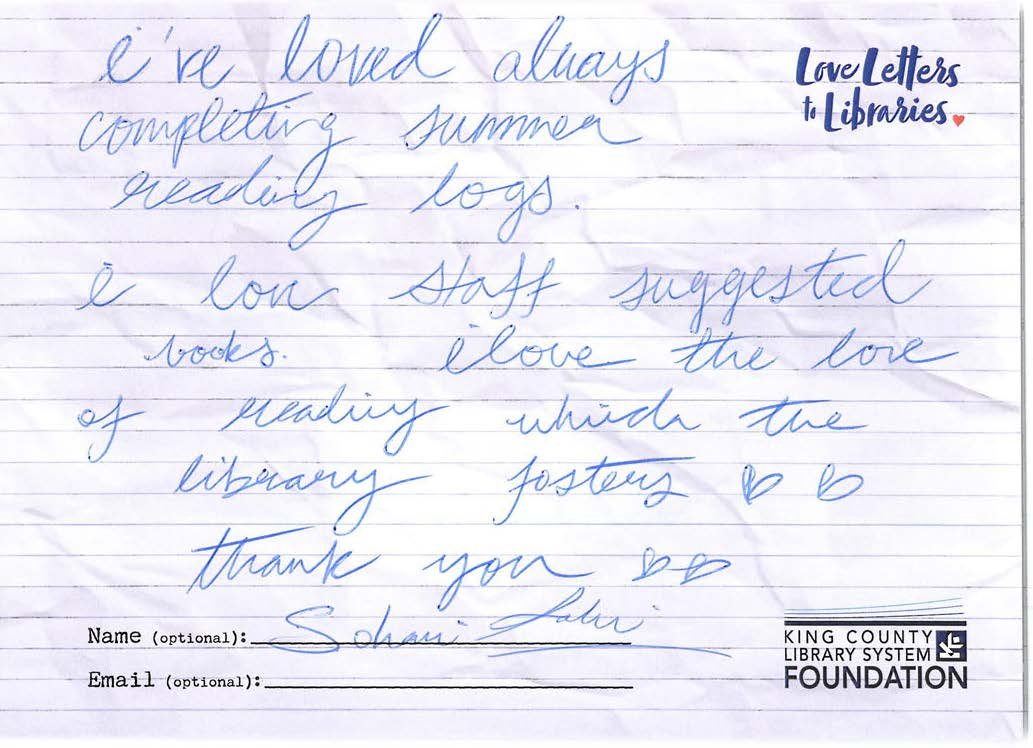 i've loved always
Love Letters
to Libraries
completing summer
reading logs.
i love staff suggested
books. i love the love
of reading which the
library fosters ♡ ♡
thank you ♡♡
Name (optional): Sohani
Email (optional):
KING COUNTY
LIBRARY SYSTEM
FOUNDATION